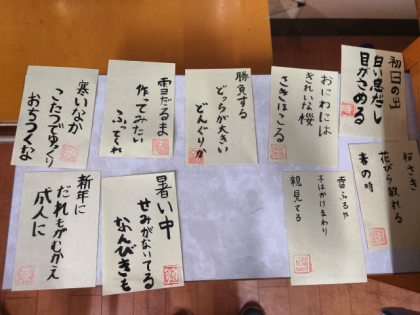 初日の出
白い息だし
目がさめる
おにわには
きれいな桜
さきほこる
勝負する
どっちが大きい
どんぐりか
雪だるま
作ってみたい
ふってくれ
寒いなか
こたつでゆっくり
おちつくな
桜さき
花びら散れる
春の時
雪ふるや
子はかけまわり
親見てる
暑い中
せみがないてる
なんびきも
新年に
だれもがむかえ
成人に